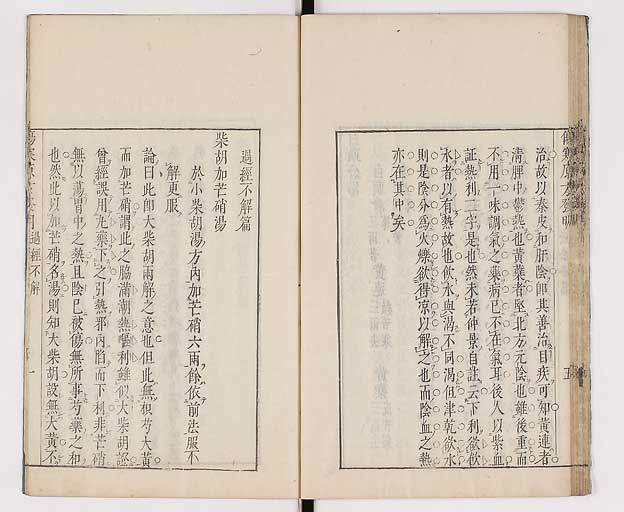 治故以秦皮和肝陰卽其善治目疾可知黄連者
清脾中鬱熱也黄蘗者堅北方元陰也雖後重而
不用一味調氣之藥病已不在氣耳後人以紫血
証熱利二字是也然未若仲景自註云下利欲飲
水者以有熱故也飲水與渴不同渴但津乾欲水
則是陰分爲火爍欲得凉以解之也而陰血之熱
亦在其中矣
過經不解篇
柴胡加芒硝湯
於小柴胡湯方內加芒硝六兩餘依前法服不
解更服
論曰此卽大柴胡兩解之意也但此無枳芍大黄
而加芒硝謂此之脇滿潮熱嘔利雖似大柴胡證
曾經誤用丸藥下之引熱邪內陷而下利非芒硝
無以蕩胃中之熱且陰已被傷無所事芍藥之和
也然此以加芒硝名湯則知大柴胡設無大黄不
過經不解